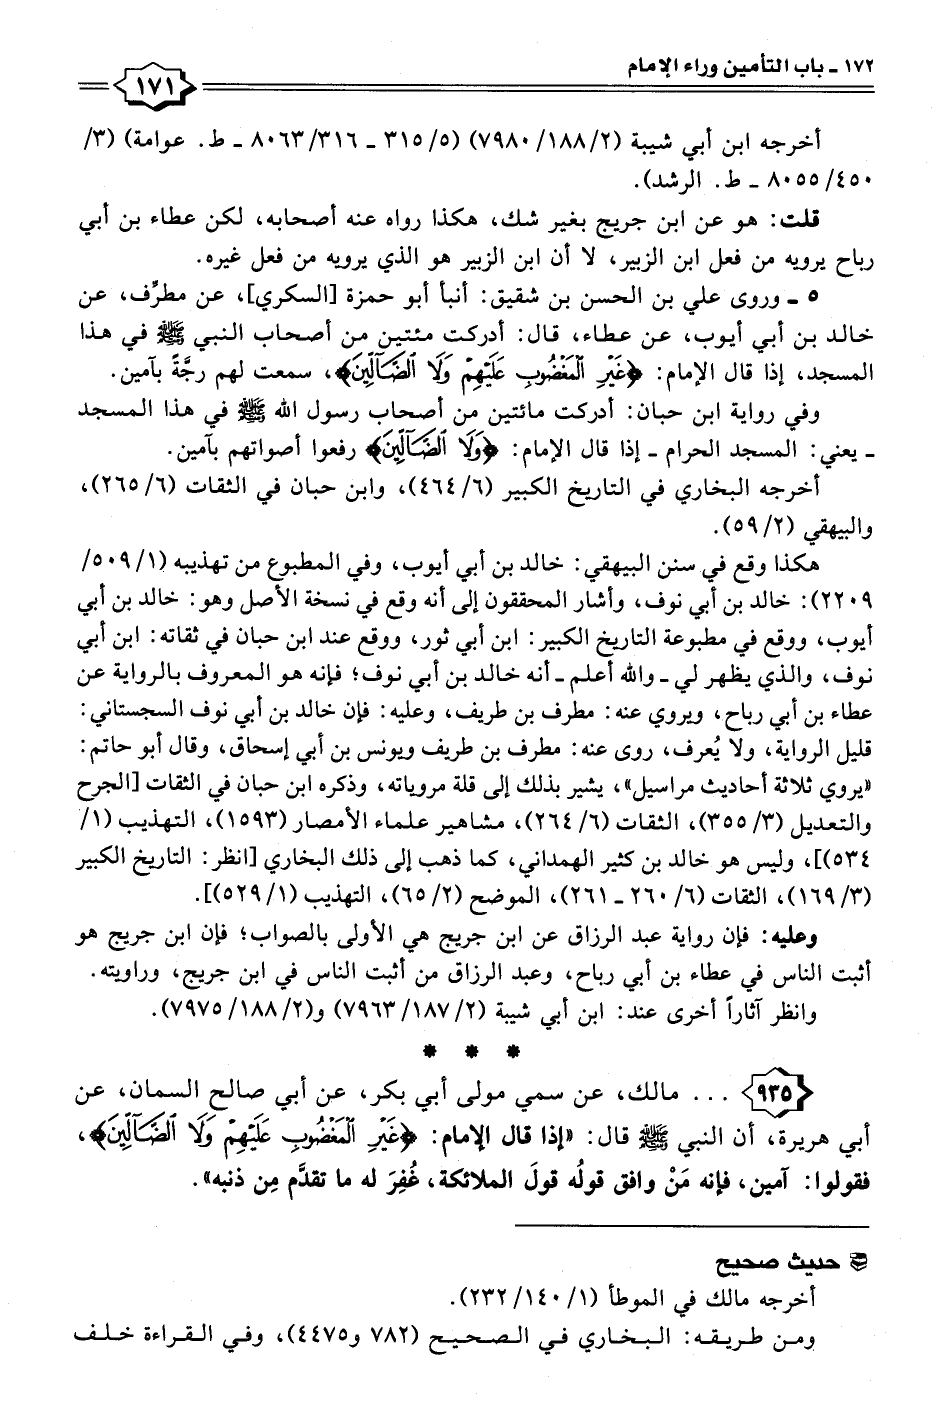 ١٧٢ ـ باب التأمين وراء الإمام
١٧١
أخرجه ابن أبي شيبة (٢/ ١٨٨/ ٧٩٨٠) (٥/ ٣١٥ ـ ٣١٦/ ٨٠٦٣ ـ ط. عوامة) (٣/
٤٥٠/ ٨٠٥٥ ـ ط. الرشد).
قلت: هو عن ابن جريج بغير شك، هكذا رواه عنه أصحابه، لكن عطاء بن أبي
رباح يرويه من فعل ابن الزبير، لا أن ابن الزبير هو الذي يرويه من فعل غيره.
٥ ـ وروى علي بن الحسن بن شقيق: أنبأ أبو حمزة [السكري]، عن مطرِّف، عن
خالد بن أبي أيوب، عن عطاء، قال: أدركت مئتين من أصحاب النبي ﷺ في هذا
المسجد، إذا قال الإمام: ﴿غَيْرِ ٱلْمَغْضُوبِ عَلَيْهِمْ وَلَا ٱلضَّآلِّينَ﴾، سمعت لهم رجَّةً بآمين.
وفي رواية ابن حبان: أدركت مائتين من أصحاب رسول الله ﷺ في هذا المسجد
ـ يعني: المسجد الحرام ـ إذا قال الإمام: ﴿وَلَا ٱلضَّآلِّينَ﴾ رفعوا أصواتهم بآمين.
أخرجه البخاري في التاريخ الكبير (٦/ ٤٦٤)، وابن حبان في الثقات (٦/ ٢٦٥)،
والبيهقي (٢/ ٥٩).
هكذا وقع في سنن البيهقي: خالد بن أبي أيوب، وفي المطبوع من تهذيبه (١/ ٥٠٩/
٢٢٠٩): خالد بن أبي نوف، وأشار المحققون إلى أنه وقع في نسخة الأصل وهو: خالد بن أبي
أيوب، ووقع في مطبوعة التاريخ الكبير: ابن أبي ثور، ووقع عند ابن حبان في ثقاته: ابن أبي
نوف، والذي يظهر لي ـ والله أعلم ـ أنه خالد بن أبي نوف؛ فإنه هو المعروف بالرواية عن
عطاء بن أبي رباح، ويروي عنه: مطرف بن طريف، وعليه: فإن خالد بن أبي نوف السجستاني:
قليل الرواية، ولا يُعرف، روى عنه: مطرف بن طريف ويونس بن أبي إسحاق، وقال أبو حاتم:
«يروي ثلاثة أحاديث مراسيل»، يشير بذلك إلى قلة مروياته، وذكره ابن حبان في الثقات [الجرح
والتعديل (٣/ ٣٥٥)، الثقات (٦/ ٢٦٤)، مشاهير علماء الأمصار (١٥٩٣)، التهذيب (١/
٥٣٤)]، وليس هو خالد بن كثير الهمداني، كما ذهب إلى ذلك البخاري [انظر: التاريخ الكبير
(٣/ ١٦٩)، الثقات (٦/ ٢٦٠ ـ ٢٦١)، الموضح (٢/ ٦٥)، التهذيب (١/ ٥٢٩)].
وعليه: فإن رواية عبد الرزاق عن ابن جريج هي الأولى بالصواب؛ فإن ابن جريج هو
أثبت الناس في عطاء بن أبي رباح، وعبد الرزاق من أثبت الناس في ابن جريج، وراويته.
وانظر آثاراً أخرى عند: ابن أبي شيبة (٢/ ١٨٧/ ٧٩٦٣) و(٢/ ١٨٨/ ٧٩٧٥).
* * *
٩٣٥ ... مالك، عن سمي مولى أبي بكر، عن أبي صالح السمان، عن
أبي هريرة، أن النبي ﷺ قال: «إذا قال الإمام: ﴿غَيْرِ ٱلْمَغْضُوبِ عَلَيْهِمْ وَلَا ٱلضَّآلِّينَ﴾،
فقولوا: آمين، فإنه مَنْ وافق قولُه قولَ الملائكة، غُفِرَ له ما تقدَّم مِن ذنبه».
حديث صحيح
أخرجه مالك في الموطأ (١/ ١٤٠/ ٢٣٢).
ومن طريقه: البخاري في الصحيح (٧٨٢ و٤٤٧٥)، وفي القراءة خلف